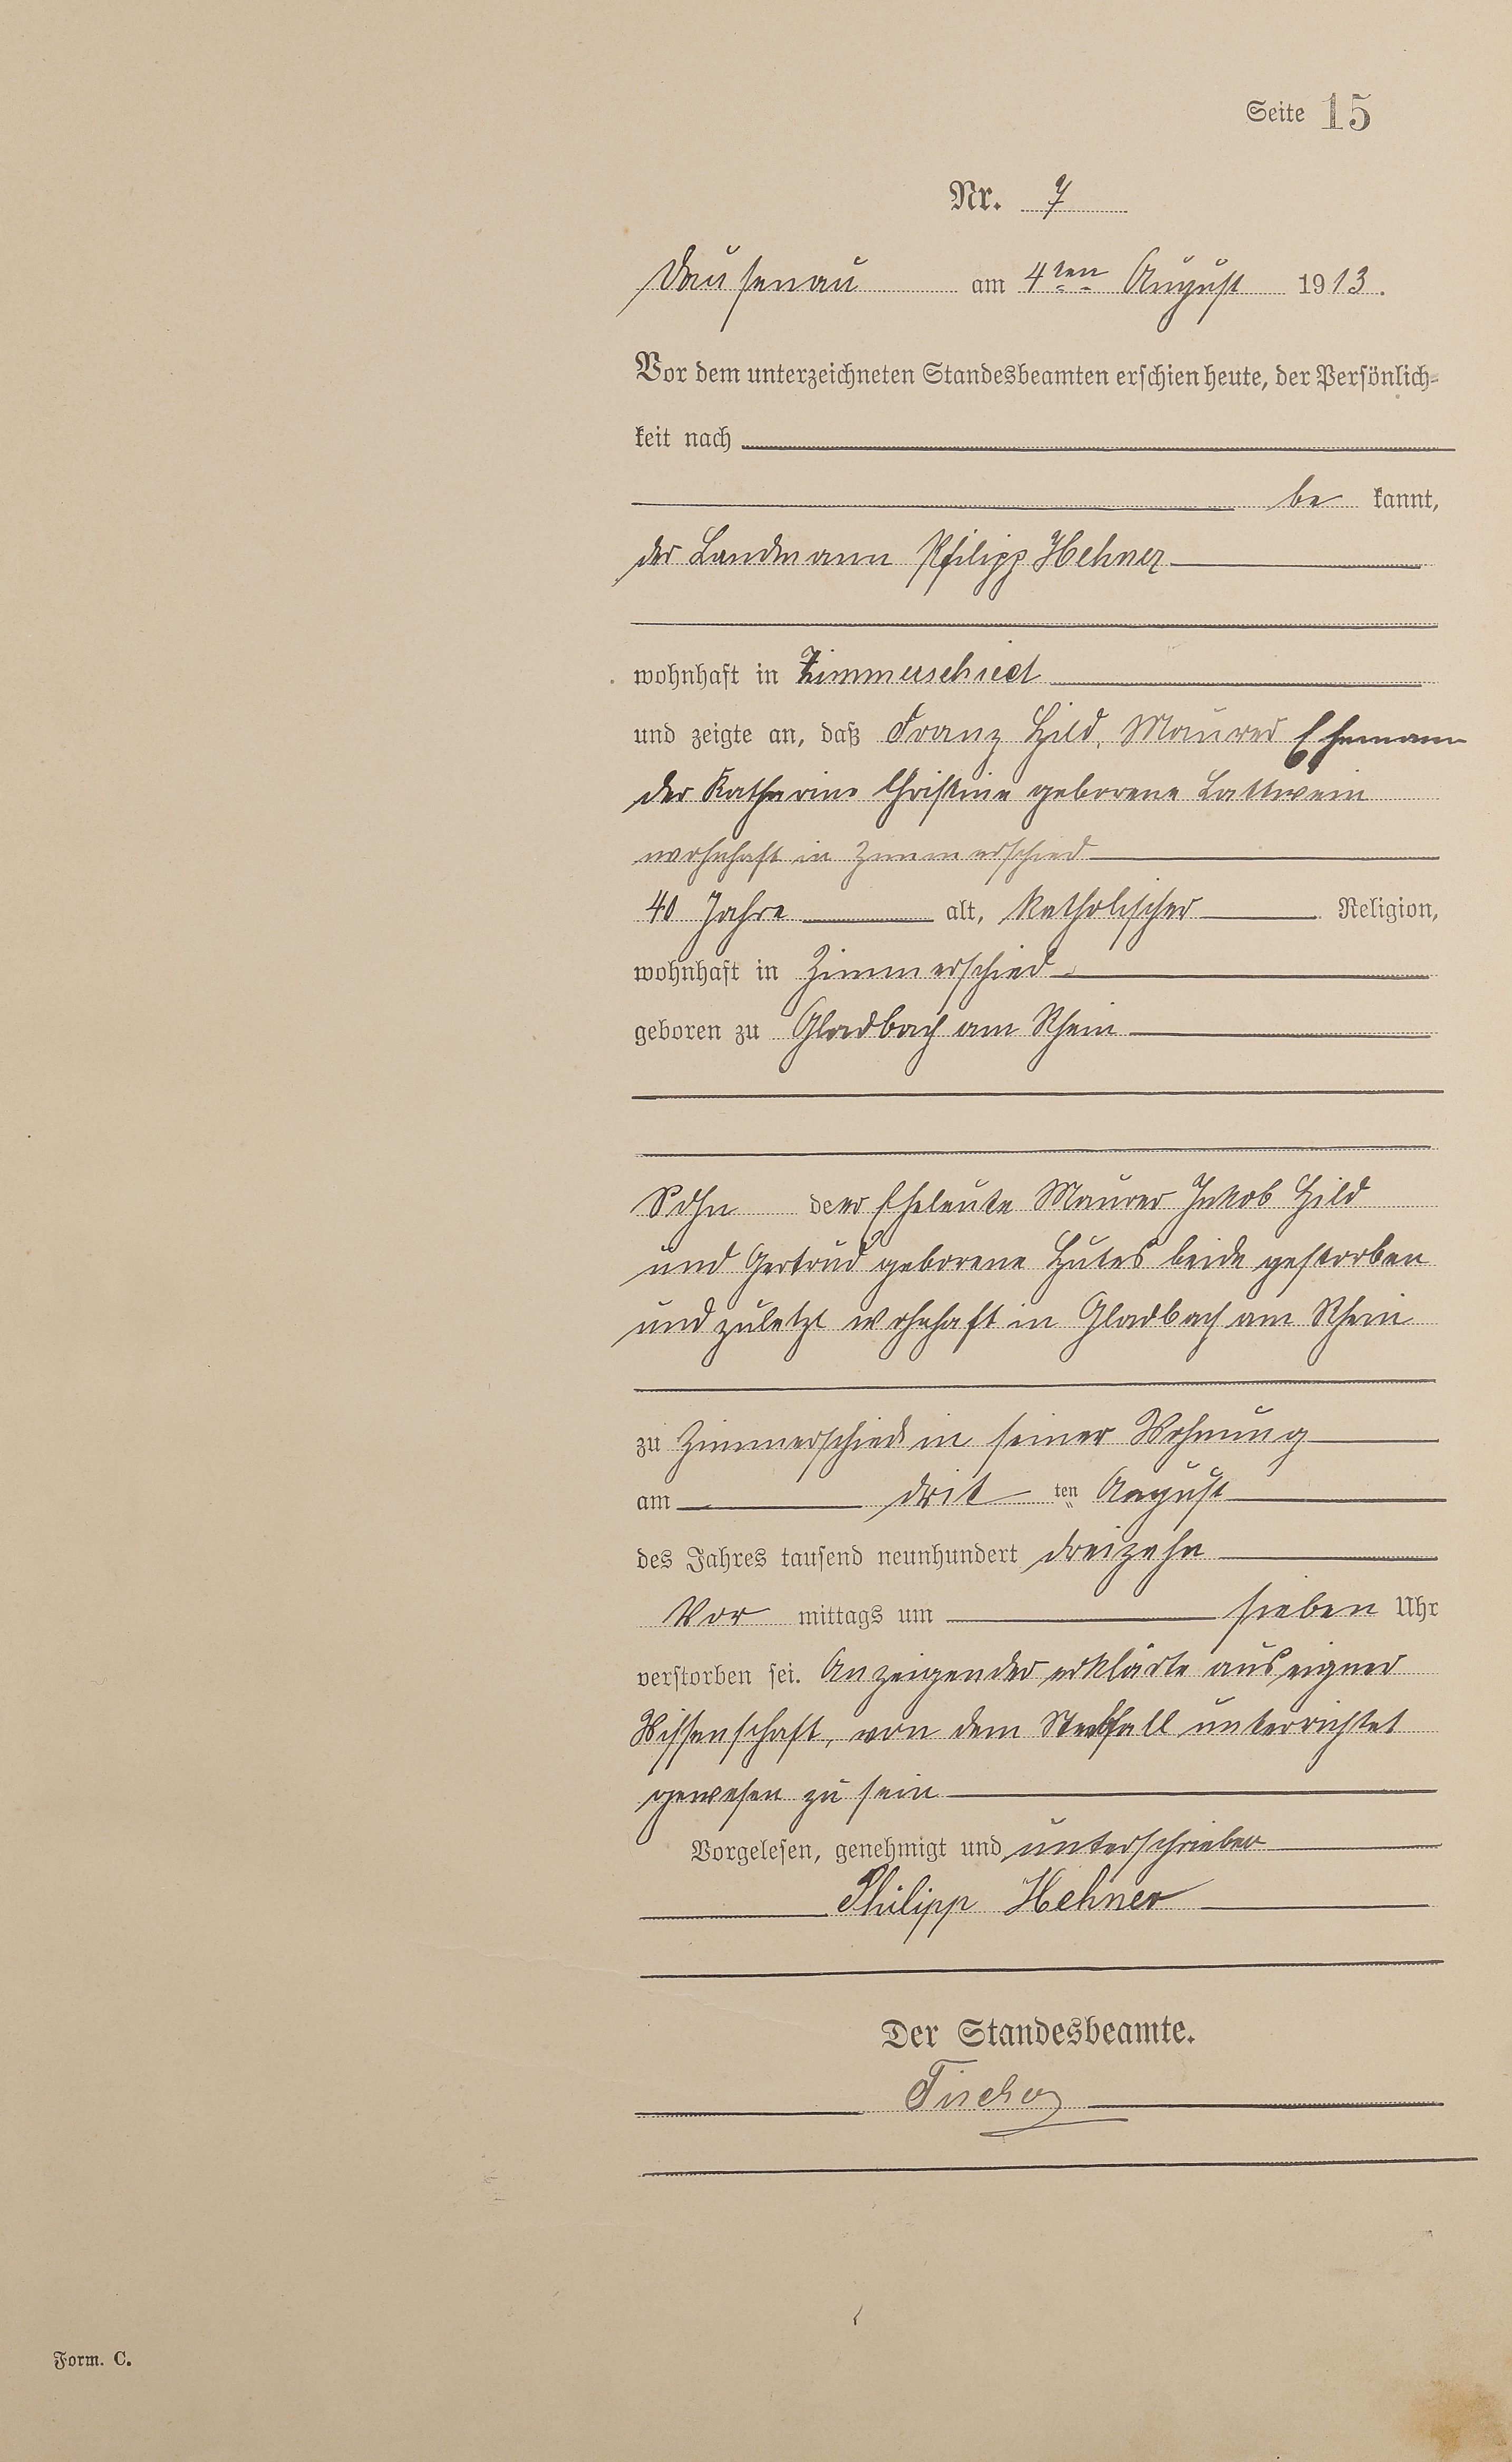 Seite 15
Nr. 7
Dausenau am 4ten August 1913.
Vor dem unterzeichneten Standesbeamten erschien heute, der Persönlich-
keit nach
be kannt,
der Landmann Philipp Hehner
wohnhaft in Zimmerschied
und zeigte an, daß Franz Hild, Maurer Ehemann
der Katharine Christine geborene Lattwein
wohnhaft in Zimmerschied
40 Jahre alt, katholischer Religion,
wohnhaft in Zimmerschied
geboren zu Gladbach am Rhein
Sohn der Eheleute Maurer Jakob Hild
und Gertrud geborene beide gestorben
und zuletzt wohnhaft in Gladbach am Rhein
zu Zimmerschied in seiner Wohnung
am drit ten August
des Jahres tausend neunhundert dreizehn
Vor mittags um sieben Uhr
verstorben sei. Anzeigender erklärte aus eigner
Wissenschaft, von dem Sterbfall unterrichtet
gewesen zu sein
Vorgelesen, genehmigt und unterschrieben
Philipp Hehner
Der Standesbeamte.
Fischer
Form. C.